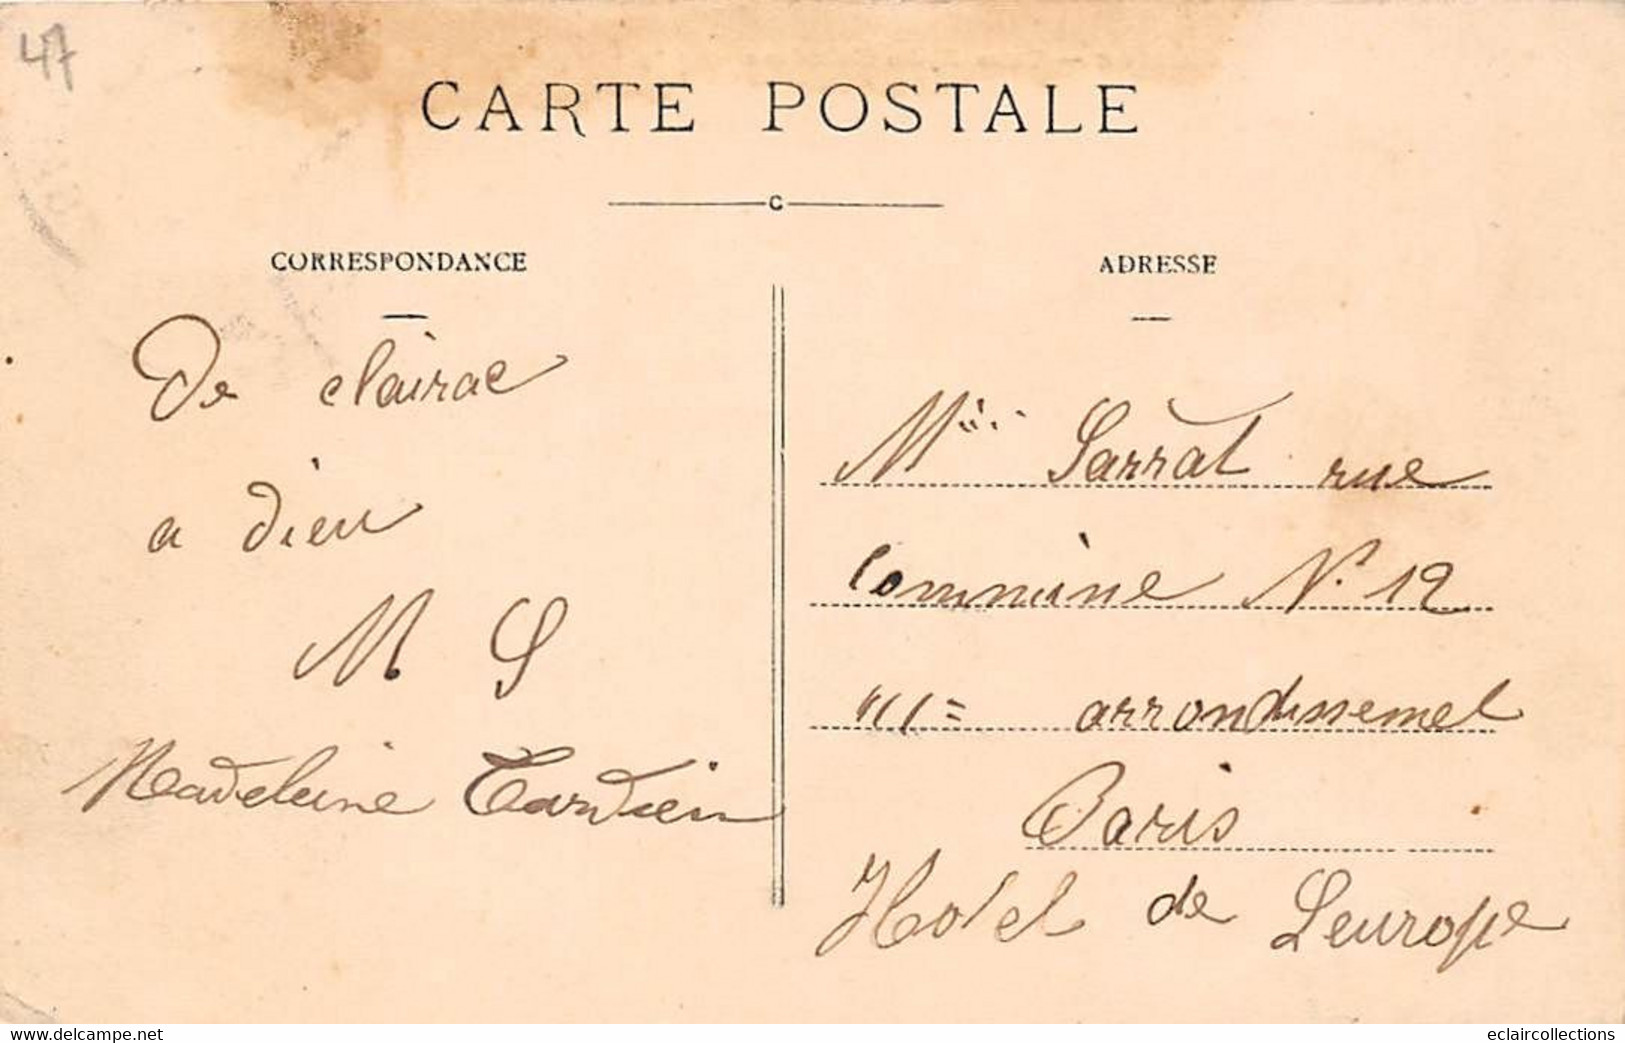 47
CARTE POSTALE
C
CORRESPONDANCE
De clairac
a dieu
M S
Madeleine Tardieu
ADRESSE
Sarrat rue
Commine N° 12
III= arrondissemet
Paris
Hotel de Leurope
www.delcampe.net
eclaircollections